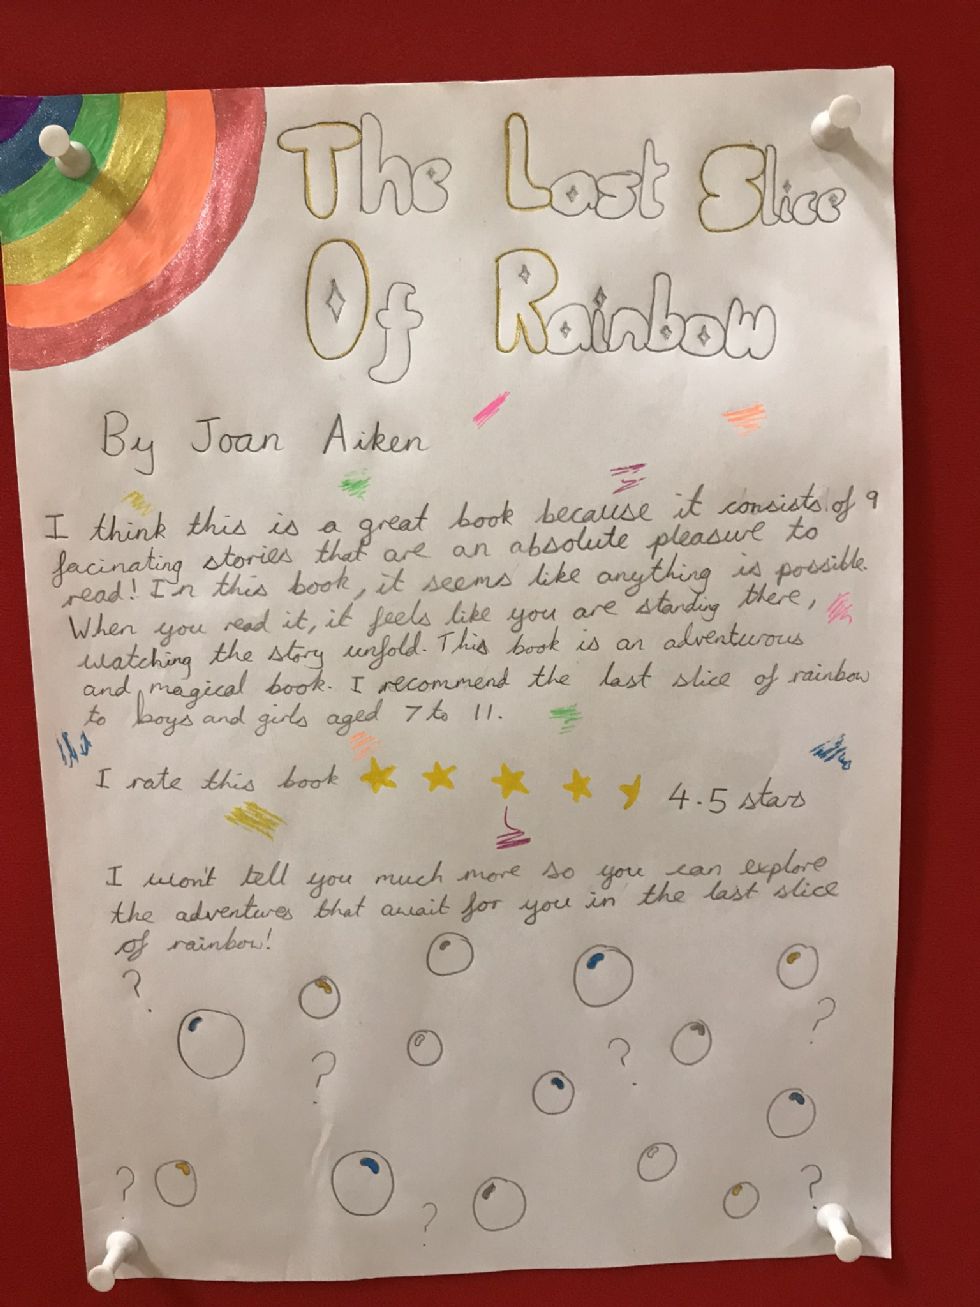 The Last Slice
Of Rainbow
By Joan Aiken
I think this is a great book because it consists of 9
facinating stories that are an absolute pleasure to
read! In this book, it seems like anything is possible.
When you read it, it feels like you are standing there,
watching the story unfold. This book is an adventurous
and magical book. I recommend the last slice of rainbow
to boys and girls aged 7 to 11.
I rate this book 4.5 stars
I won't tell you much more so you can explore
the adventures that await for you in the last slice
of rainbow!
?
?
?
?
?
?
?